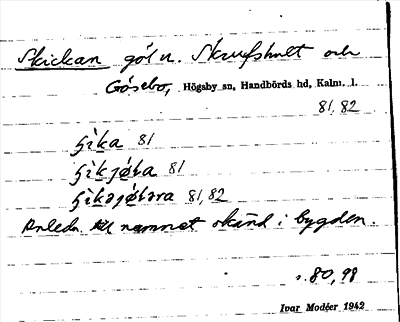 Skickan göl u. Skrufshult och
Gösebo, Högsby sn, Handbörds hd, Kalm. l.
81, 82
ʃìka 81
ʃìkjø̀la 81
ʃìkəjø̀ləra 81, 82
Anledn. till namnet okänd i bygden.
s. 80, 98
Ivar Modéer 1942